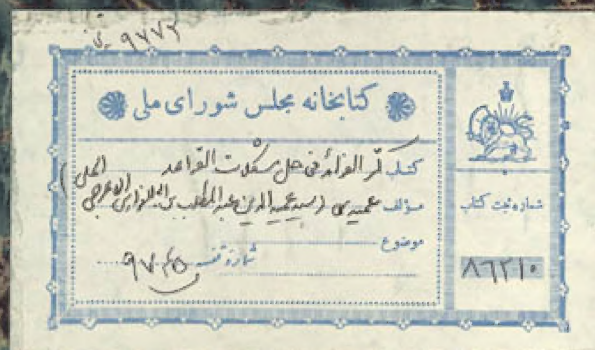 ۹۷۷۲
کتابخانه مجلس شورای ملی
کتاب کنز الفوائد فی حل مشکلات القواعد
مؤلف عمیدی (سید عمیدالدین عبدالمطلب الاعرجی الحلی)
موضوع
شماره ۹۷۴۵
شماره ثبت کتاب
۸۶۲۱۰